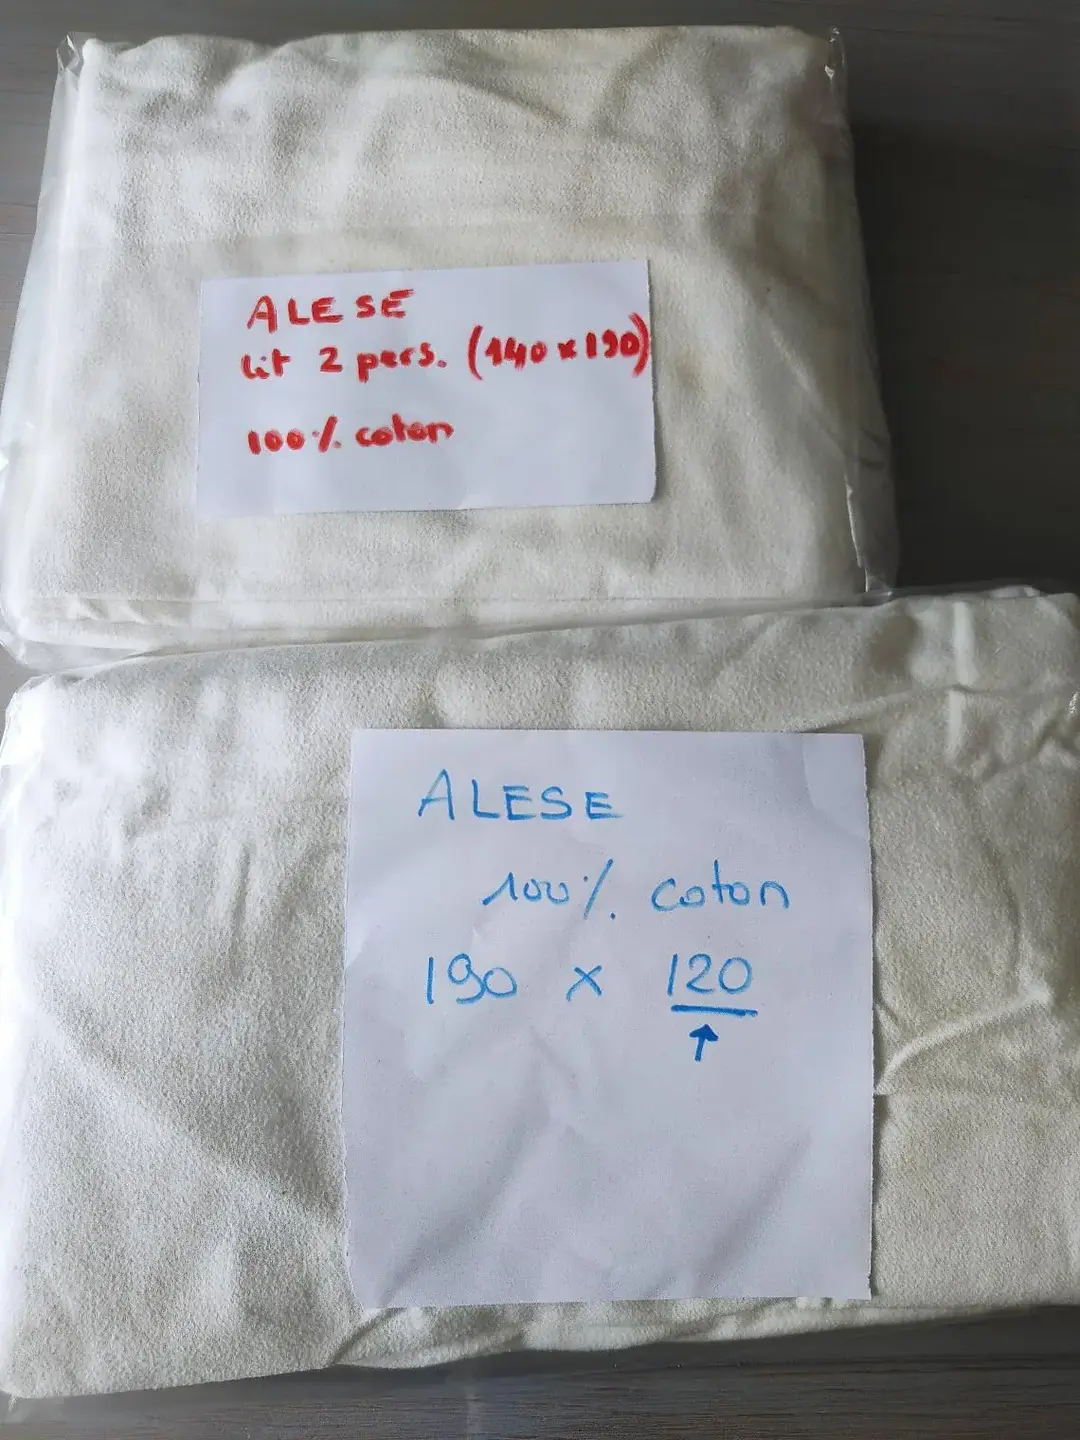 ALESE
lit 2 pers. (140 x 190)
100% coton
ALESE
100% coton
190 x 120
↑